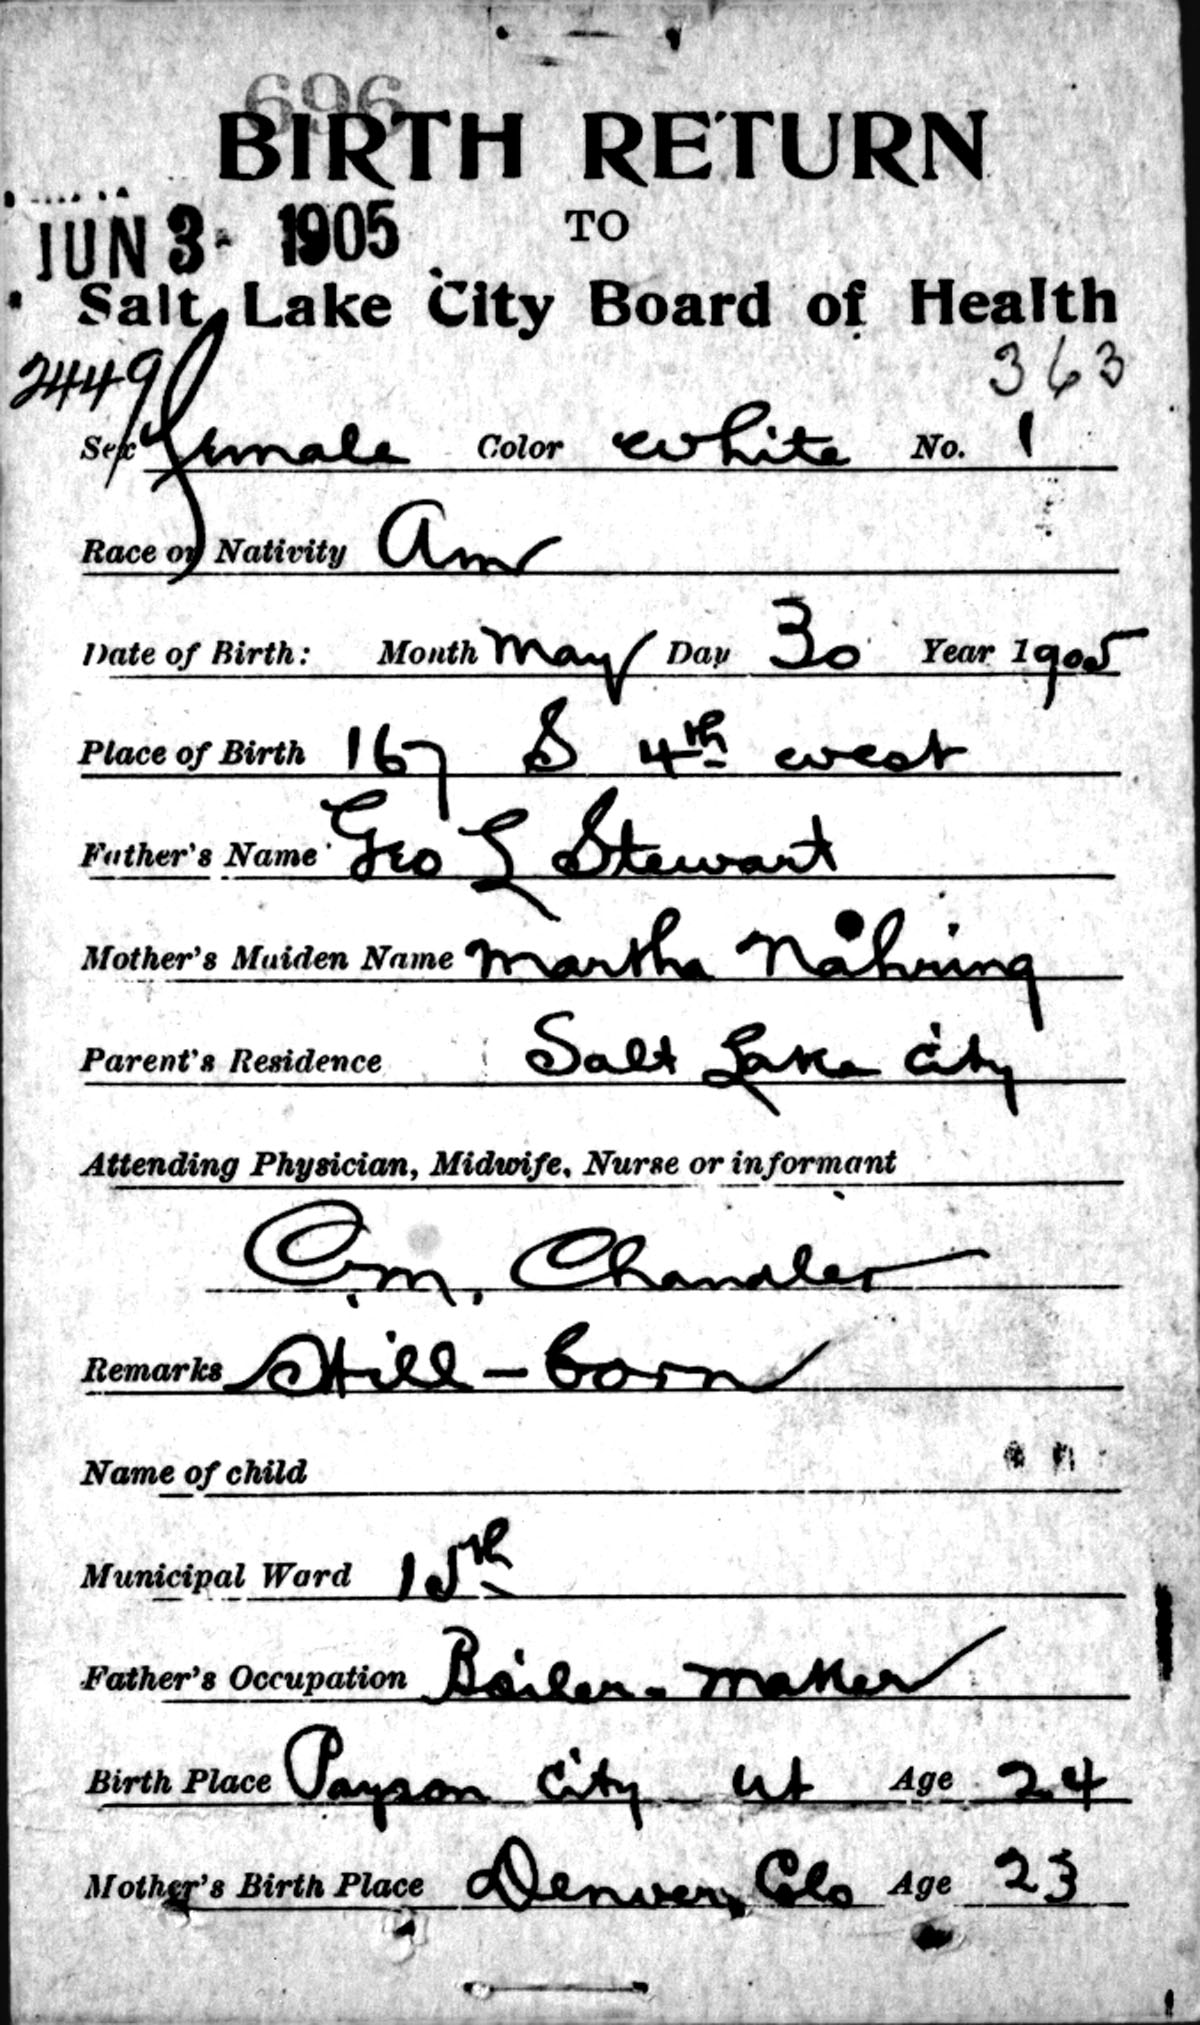 696
BIRTH RETURN
JUN 3 - 1905 TO
Salt Lake City Board of Health
2449 363
Sex female Color white No. 1
Race or Nativity Am
Date of Birth: Month May Day 30 Year 1905
Place of Birth 167 S 4th west
Father's Name Geo L Stewart
Mother's Maiden Name Martha Nähring
Parent's Residence Salt Lake City
Attending Physician, Midwife, Nurse or informant
C.M. Chandler
Remarks Still-born
Name of child
Municipal Ward 15th
Father's Occupation Boiler-maker
Birth Place Payson City Ut Age 24
Mother's Birth Place Denver, Colo Age 23